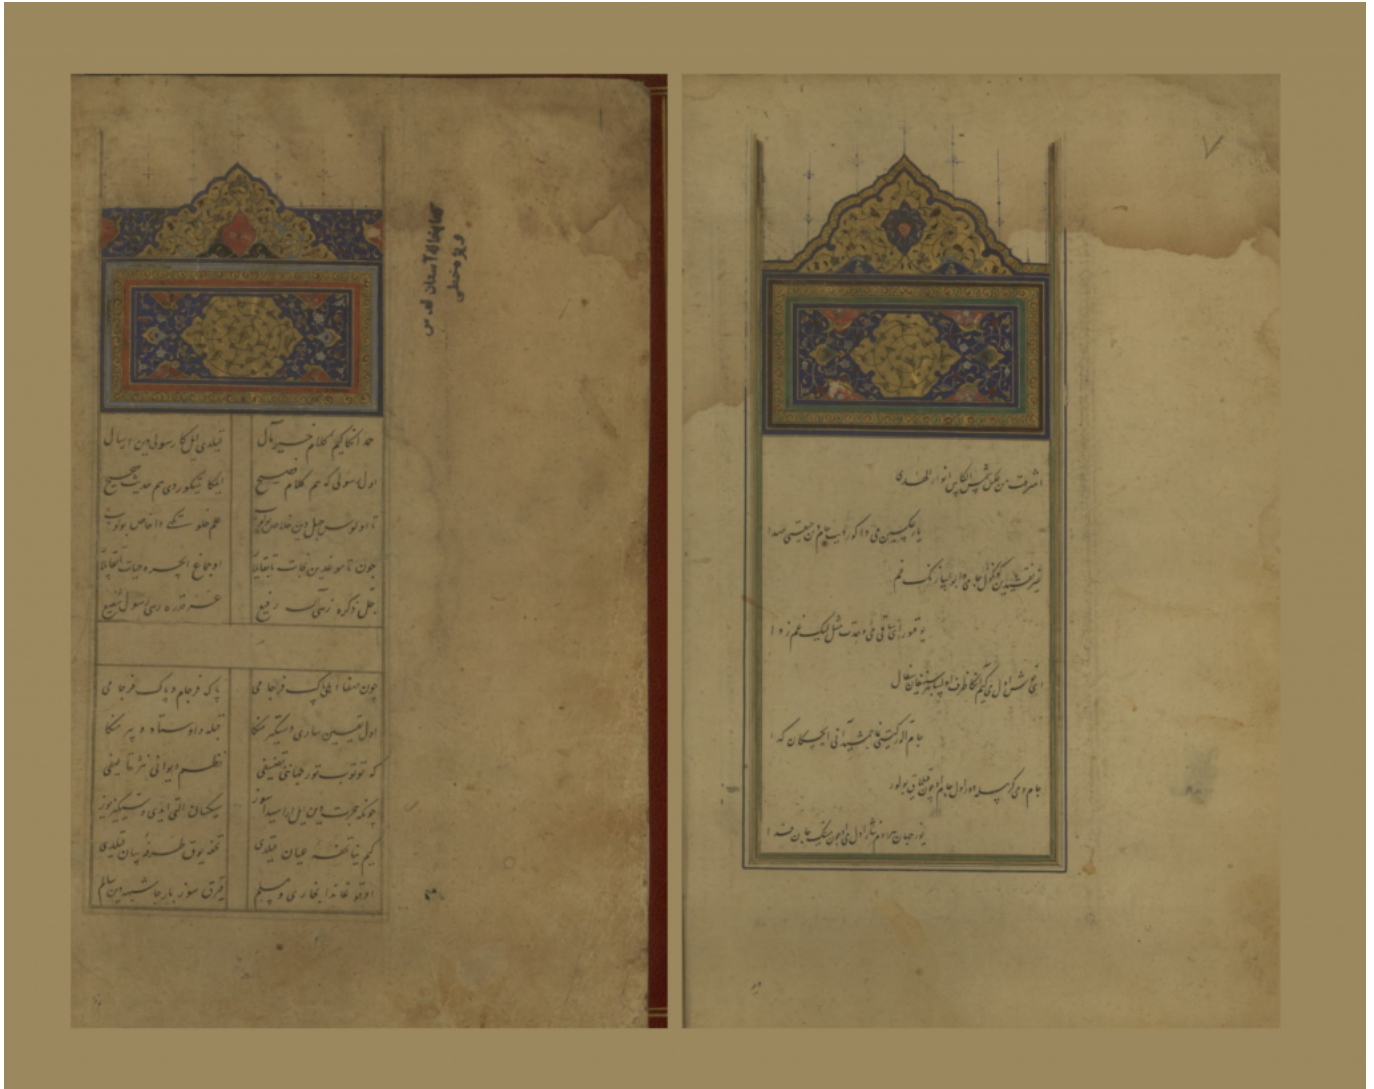 ۷
اشرقت من عکس شمس الکاس انوار الهدی
یار عکسین می دا کور دیب جام دین چیقتی صدا
غیر نقشیدین کونکول جامی دا بولسا زنک غم
یوقتور ای ساقی می وحدت مثل لیک غم زدا
ای خوش اول می کیم انکا ظرف اولسا بیر سینغان سفال
جام اولور کیتی نما جمشید آنی ایچکان کدا
جام و می کر بویله دور اول جام اوچون قیلماق بولور
یوز جهان هر دم نثار اول می اوچون مینک جان فدا
کتابخانه آستان قدس
ویژه خطی
حمد انکا کیم کلام خیر مآل قیلدی ایلکا رسولی دین ارسال
اول رسولی که هم کلام فصیح ایلکا ییتکوردی هم حدیث صحیح
تا اولوس جهل دین خلاص بولوب علم خلوتکهی دا خاص بولوب
چون تاموغدین نجات تاپقایلار اوجماغ ایچره حیات تاپقایلار
جل ذکره زهی اله رفیع عز قدره زهی رسول شفیع
چون صفا اهلی پاک فرجامی پاک فرجام و پاک فرجامی
اول یقین ساری دستکیر منکا قبله و اوستاد و پیر منکا
که توتوب تور جهاننی تصنیفی نظم دیوانی نثر تالیفی
سیکسان التی ایدی و سیکیز یوز
تحفه عیان قیلدی تحفه یوق طرفه بیان قیلدی
اوقوغاندا بخاری و مسلم قیرق سوز بارجا شبهه دین سالم